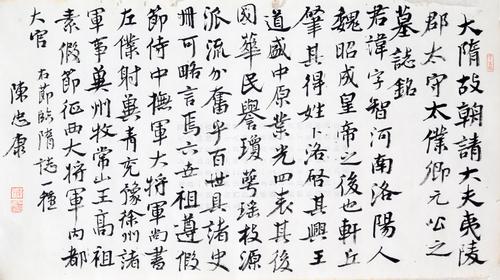 大隋故朝請大夫夷陵
郡太守太僕卿元公之
墓誌銘
君諱字智河南洛陽人
魏昭成皇帝之後也軒丘
肇其得姓卜洛啓其興王
道盛中原業光四表其後
國華民譽瓊萼瑶枝源
派流分奮乎百世具諸史
冊可略言焉六世祖遵假
節侍中撫軍大將軍尚書
左僕射冀青兗豫徐州諸
軍事冀州牧常山王高祖
素假節征西大將軍内都
大官
右節臨隋誌一種
陳忠康